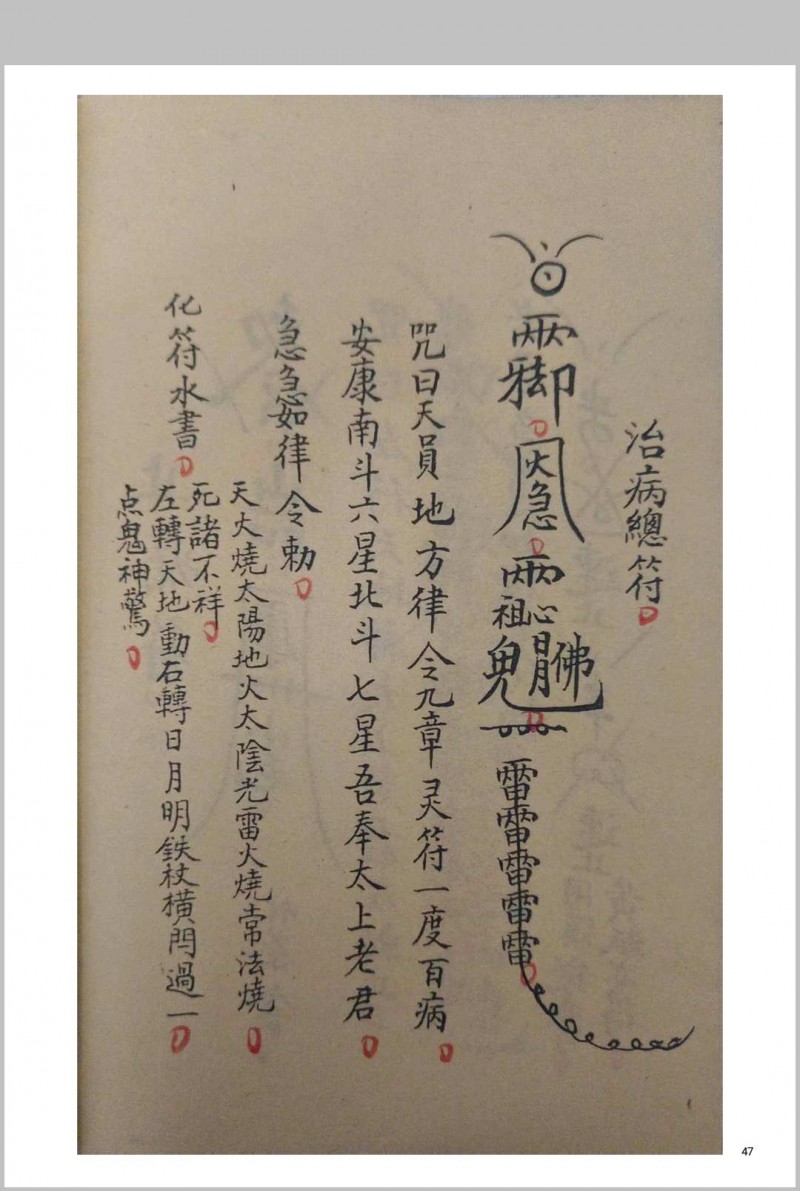 治病總符
雷雷雷雷雷
咒曰天員地方律令九章灵符一度百病
安康南斗六星北斗七星吾奉太上老君
急急如律令勅
天火燒太陽地火太陰光雷火燒常法燒
死諸不祥
化符水書
左轉天地動右轉日月明鉄杖橫門過一
点鬼神驚
47